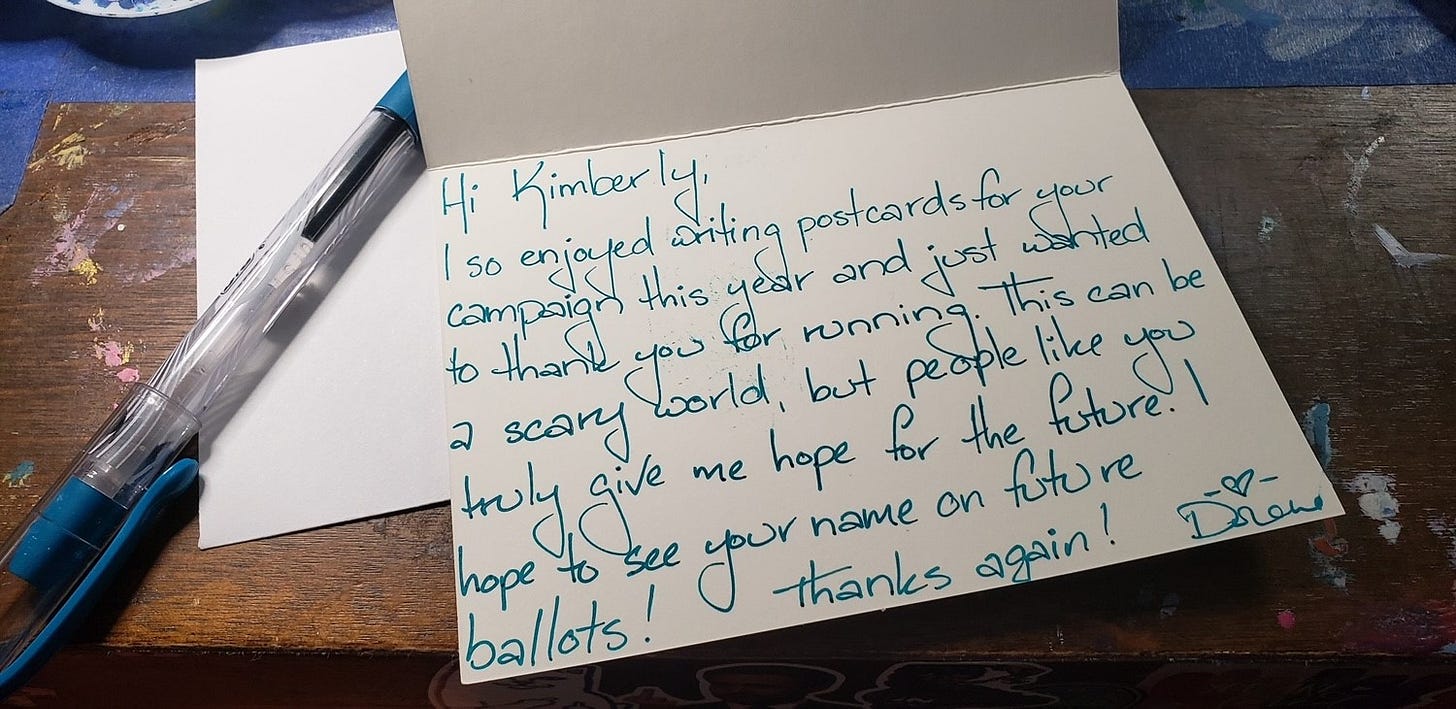 Hi Kimberly,
I so enjoyed writing postcards for your
campaign this year and just wanted
to thank you for running. This can be
a scary world, but people like you
truly give me hope for the future. I
hope to see your name on future
ballots! thanks again!